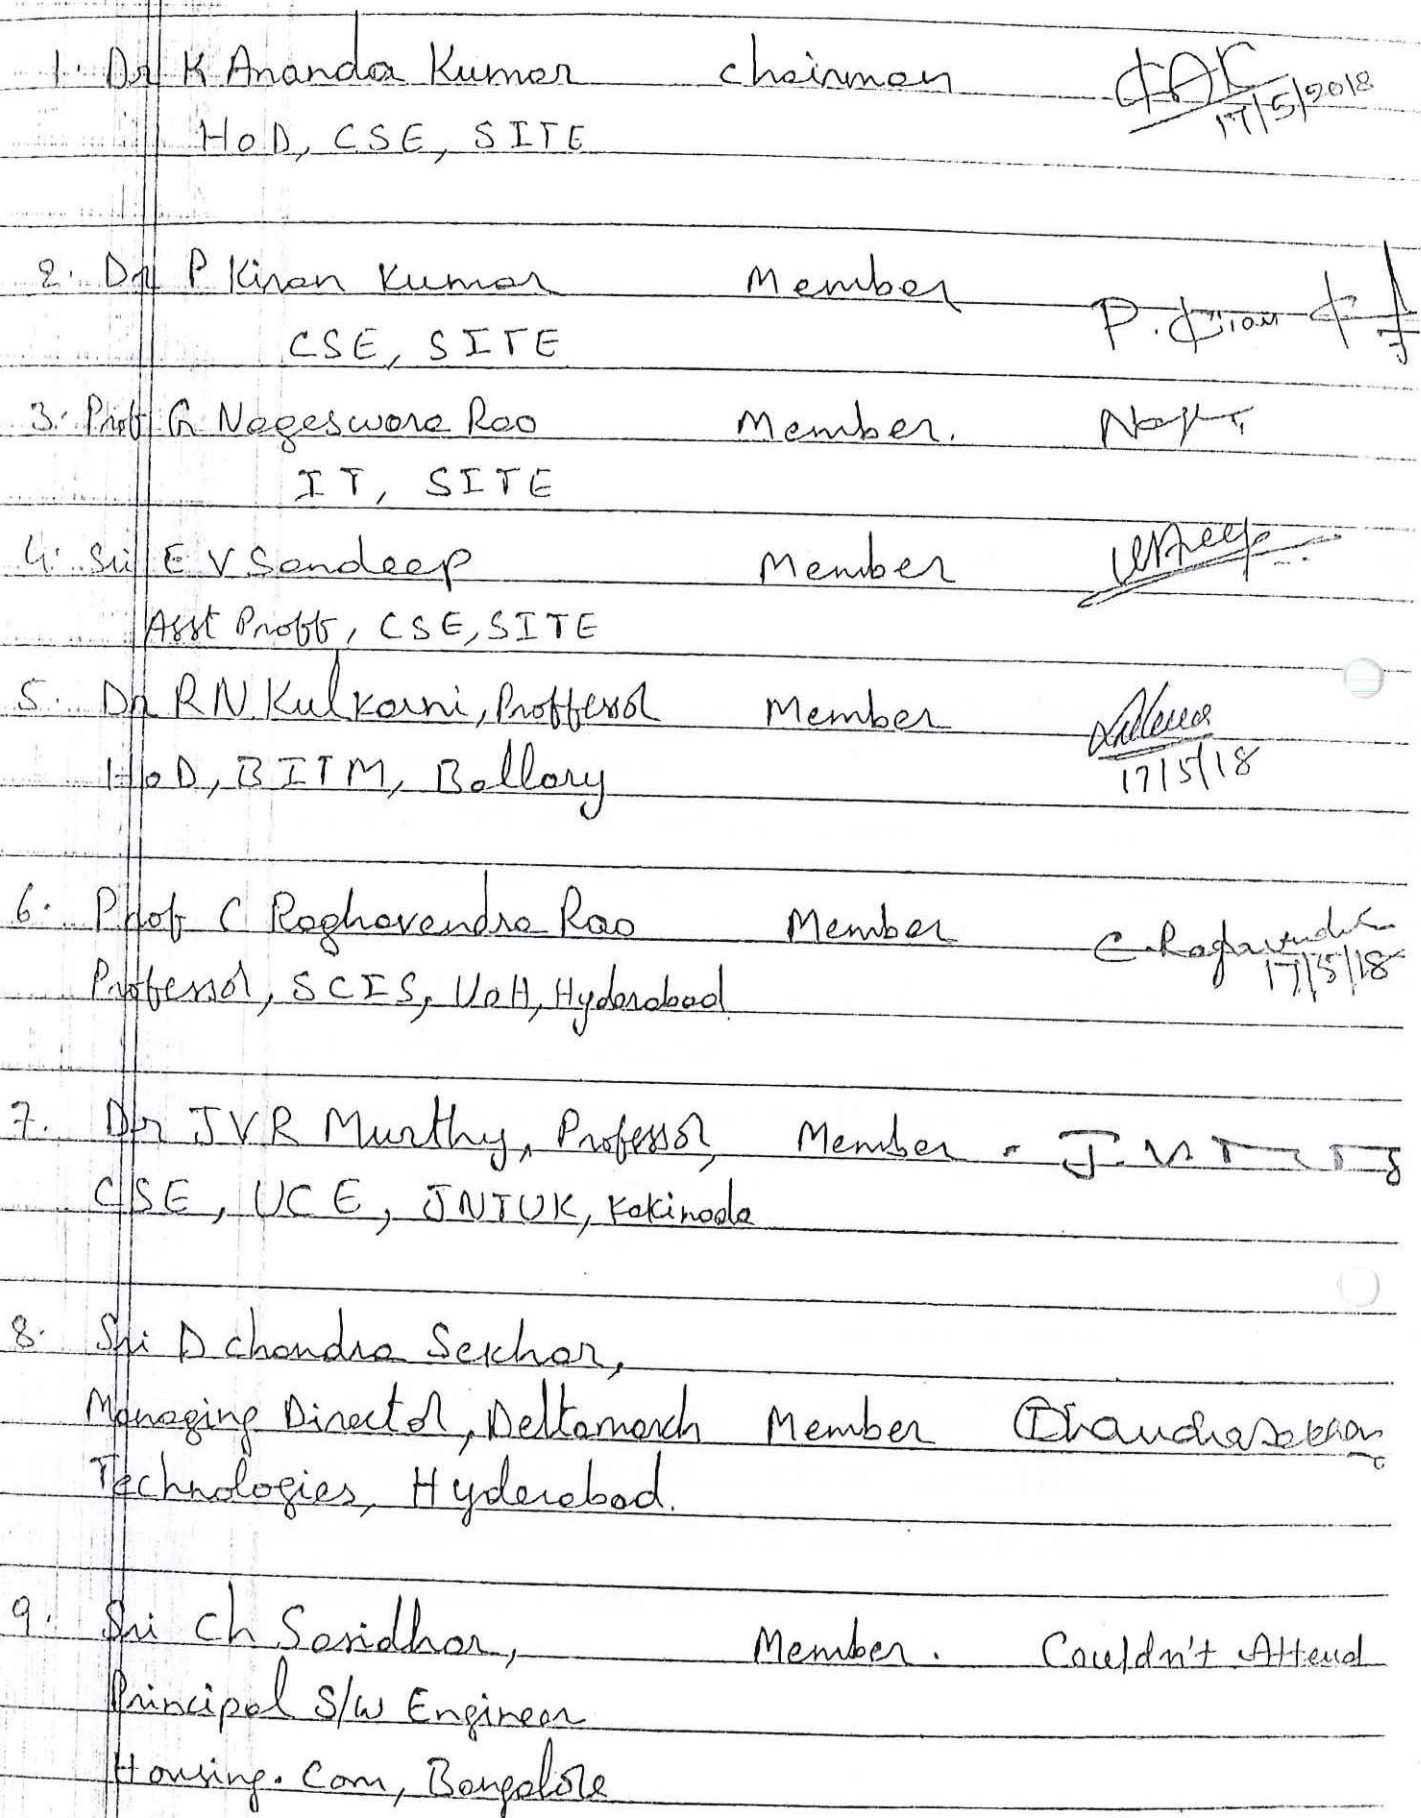 1. Dr K Ananda Kumar Chairman
17/5/2018
HoD, CSE, SITE
2. Dr P Kiran Kumar Member P. Kiran K
CSE, SITE
3. Prof G Nageswara Rao Member.
IT, SITE
4. Sri E V Sandeep Member
Asst Proff, CSE, SITE
5. Dr R N Kulkarni, Proffessor Member
17/5/18
HoD, BITM, Bellary
6. Prof C Raghavendra Rao Member C. Raghavendra
17/5/18
Professor, SCIS, UoH, Hyderabad
7. Dr JVR Murthy, Professor, Member
CSE, UCE, JNTUK, Kakinada
8. Sri D Chandra Sekhar,
Managing Director, Deltamarch Member DChandrasekhar
Technologies, Hyderabad.
9. Sri Ch Sasidhar, Member. Couldn't Attend
Principal S/W Engineer
Housing.Com, Bangalore